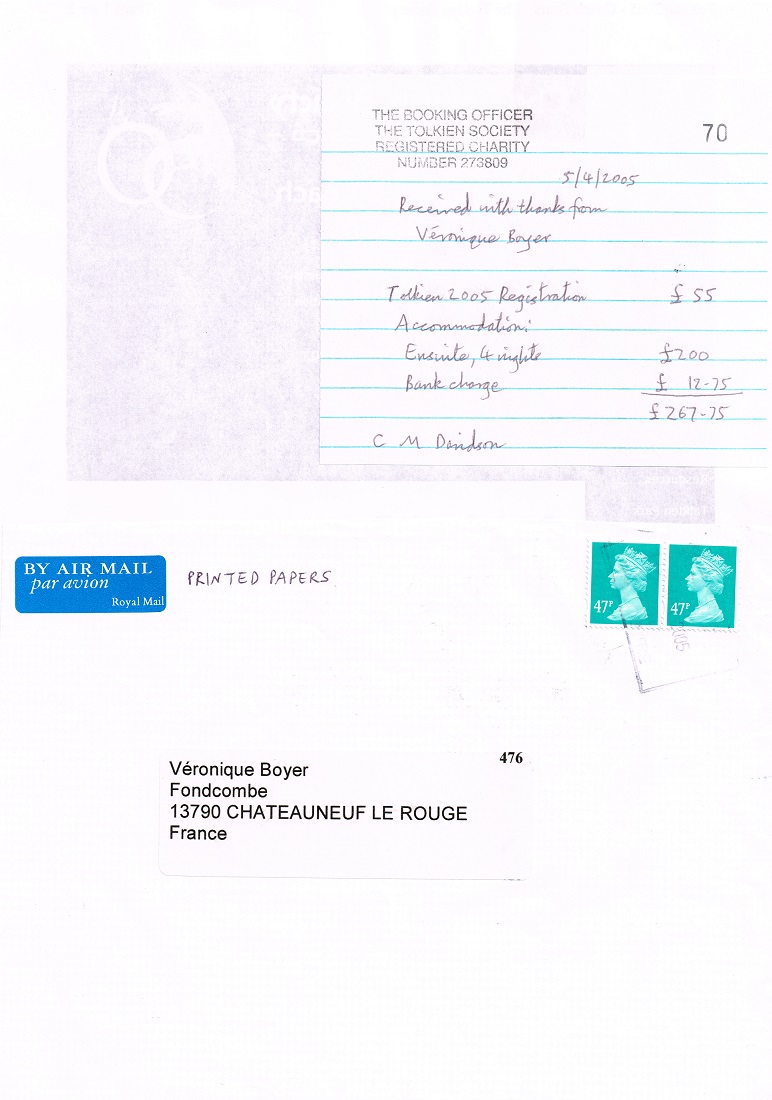 THE BOOKING OFFICER
THE TOLKIEN SOCIETY
REGISTERED CHARITY
NUMBER 273809
70
5/4/2005
Received with thanks from
Véronique Boyer
Tolkien 2005 Registration £ 55
Accommodation:
Ensuite, 4 nights £200
Bank charge £ 12-75
£267-75
C M Davidson
BY AIR MAIL
par avion
Royal Mail
PRINTED PAPERS
47P 47P
476
Véronique Boyer
Fondcombe
13790 CHATEAUNEUF LE ROUGE
France